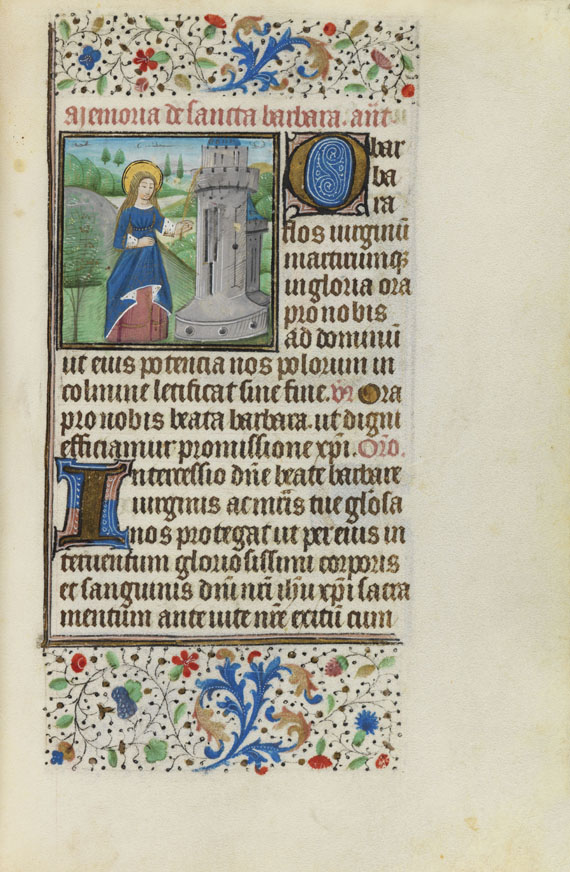 Memoria de sancta barbara. ant
O bar
ba
ra
flos uirginū
martirumq
in gloria ora
pro nobis
ad dominū
ut eius potencia nos polorum in
culmine letificat sine fine. vr Ora
pro nobis beata barbara. ut digni
efficiamur promissione xpi. Oro.
Intercessio dne beate barbare
uirginis ac mris tue glosa
nos protegat ut per eius in
teruentum gloriosissimi corporis
et sanguinis dni nri ihu xpi sacra
mentum ante uite nre exitū cum